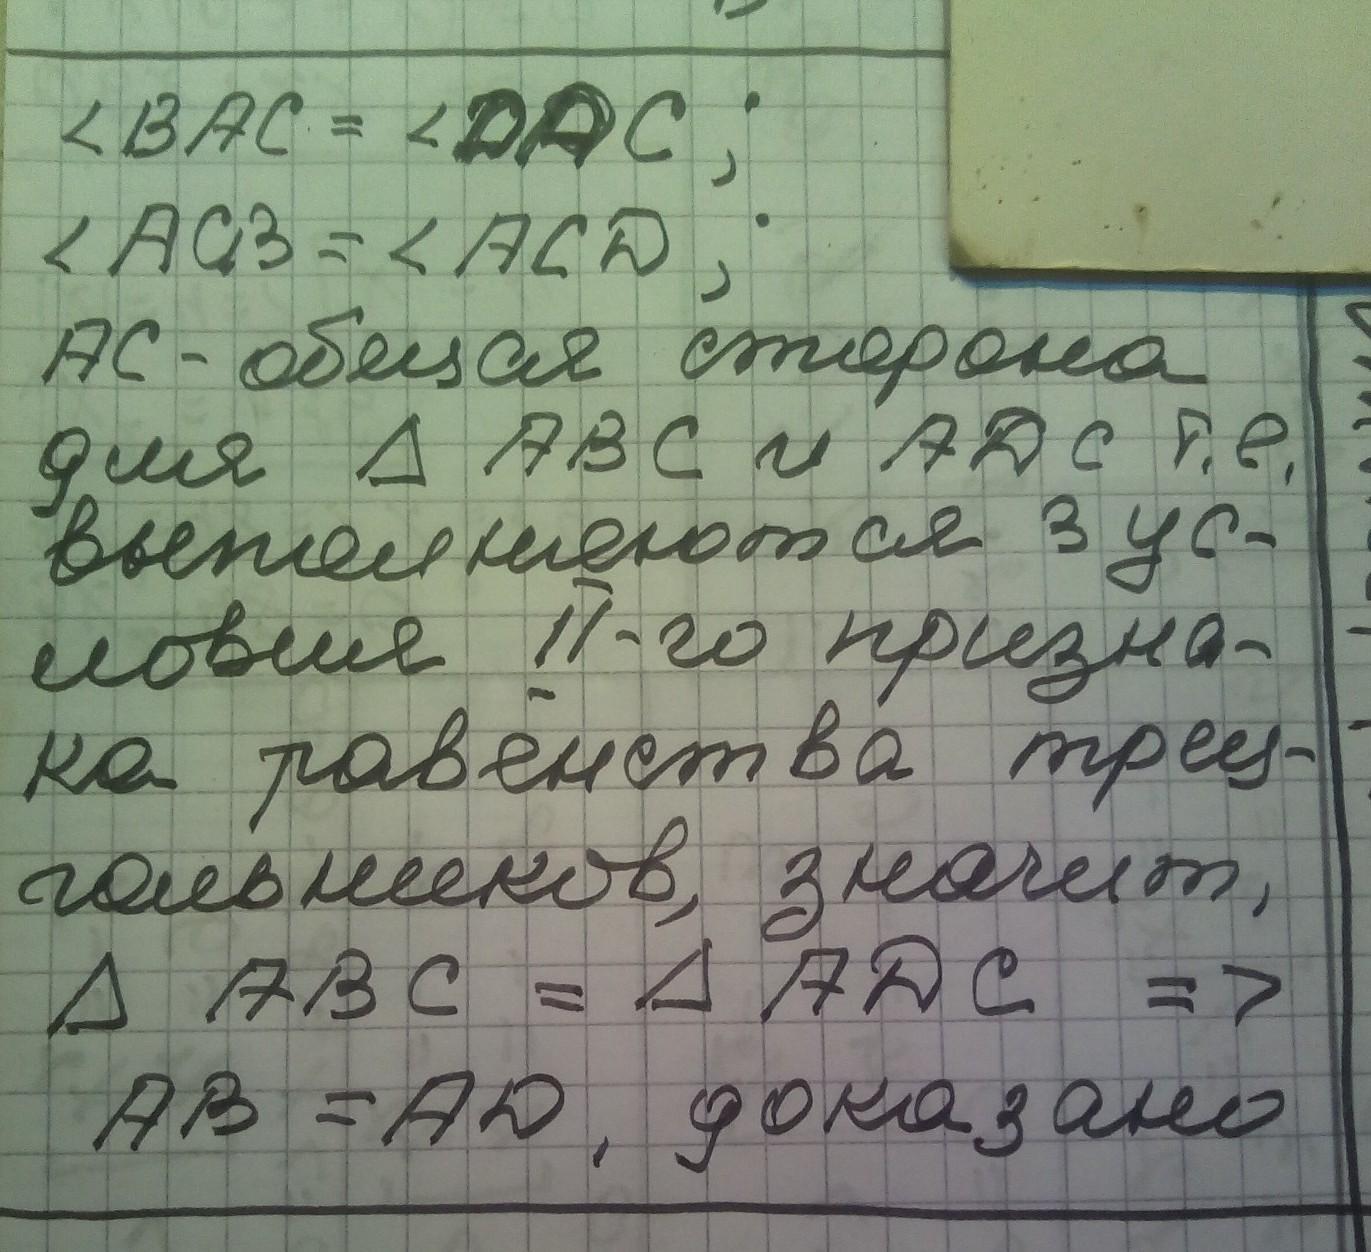 <BAC = <DAC;
<ACB = <ACD;
AC - общая сторона
для Δ ABC и ADC т.е.
выполняются 3 ус-
ловия II-го призна-
ка равенства треу-
гольников, значит,
Δ ABC = Δ ADC =>
AB = AD, доказано